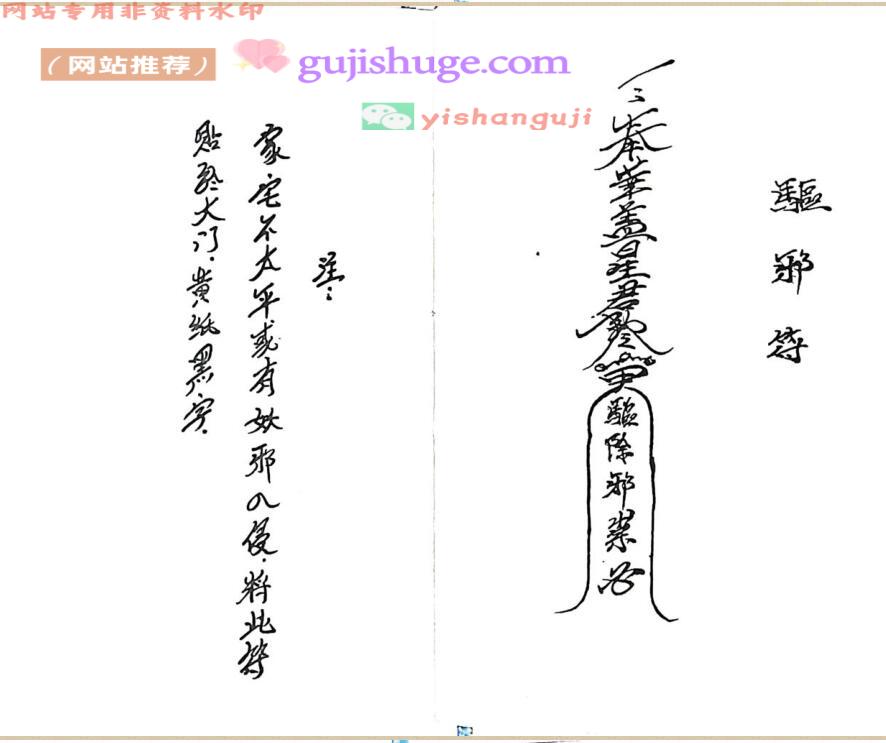 网站专用非资料水印
（网站推荐）
gujishuge.com
yishanguji
驅邪符
奉華蓋星君敕令
驅除邪祟
注:
家宅不太平或有妖邪入侵.将此符
贴於大门.黄纸黑字.